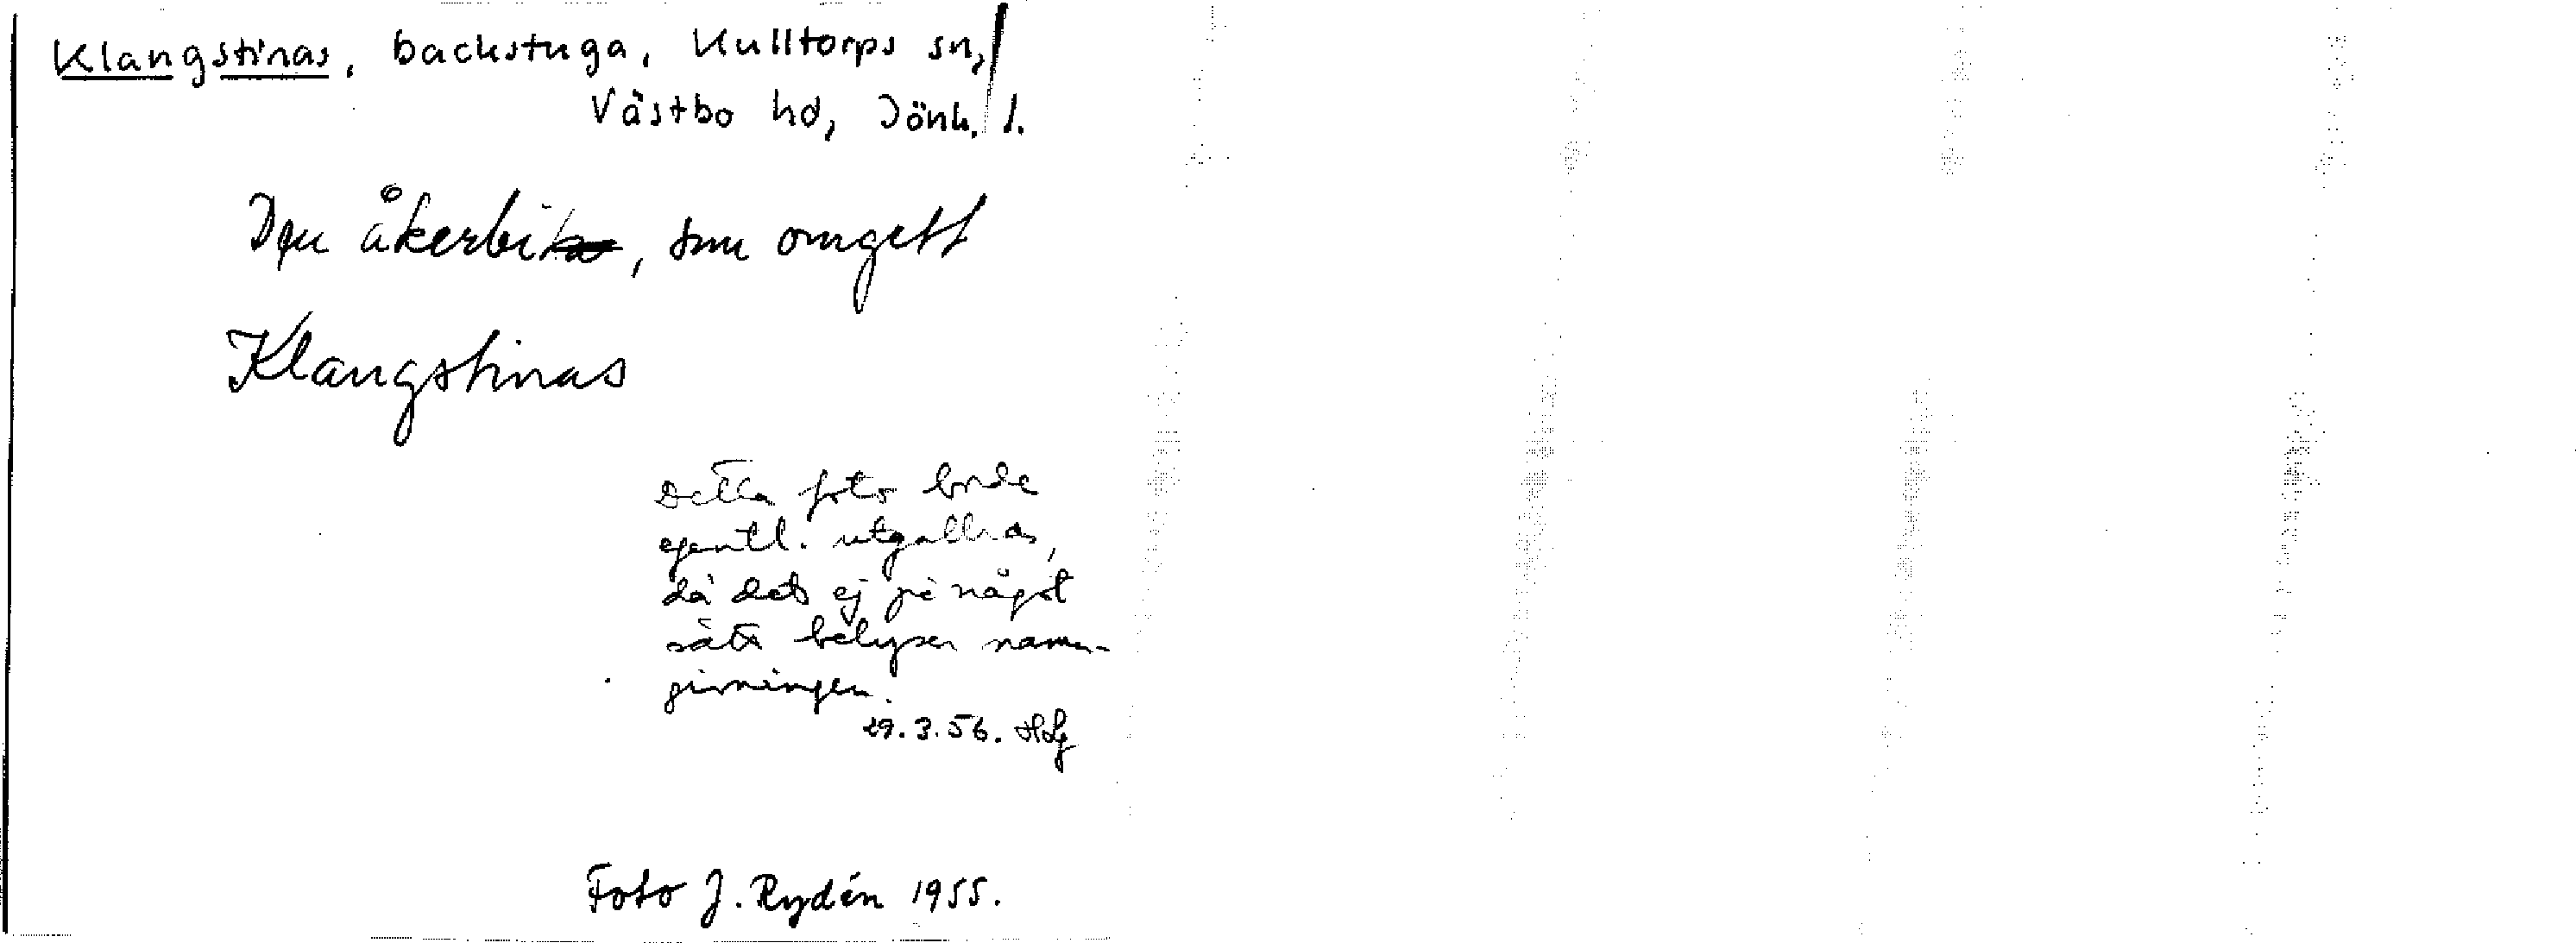 Klangstinas, backstuga, Kulltorps sn,
Västbo hd, Jönk. l.
Den åkerbit, som omgett
Klangstinas
Detta foto borde
egentl. utgallras,
då det ej på något
sätt belyser namn-
givningen.
29.3.56. HLj
Foto J. Rydén 1955.